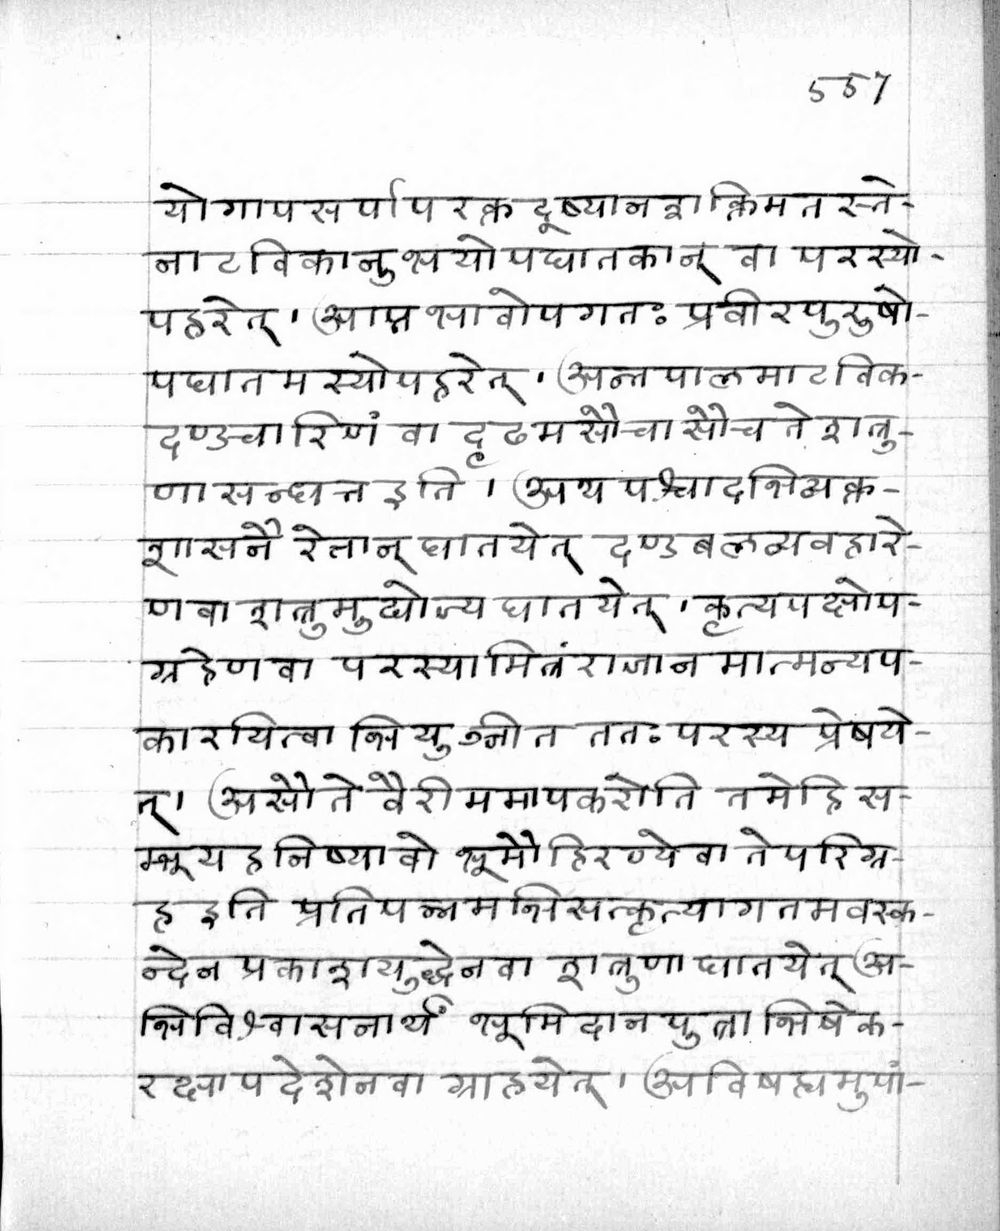 557
योगापसर्पापरक्त दूष्यानशक्तिमत स्ते-
नाटविकानुभयोपघातकान् वा परस्यो-
पहरेत् । आप्तभावोपगतः प्रवीरपुरुषो-
पघातमस्योपहरेत् । अन्तपालमाटविक-
दण्डचारिणं वा दृढमसौचासौच ते शत्रु-
णा सन्धत्त इति । अथ पश्चादभित्यक्त-
शासनै रेतान् घातयेत् दण्डबलव्यवहारे-
ण वा शत्रुमुद्योज्य घातयेत् । कृत्यपक्षोप-
ग्रहेण वा परस्यामित्रं राजान मात्मन्यप-
कारयित्वाभियुञ्जीत ततः परस्य प्रेषये-
त् । असौ ते वैरी ममापकरोति तमेहि स-
म्भूय हनिष्यावो भूमौ हिरण्ये वा ते परिग्र-
ह इति प्रतिपन्नमभिसत्कृत्यागतमवस्क-
न्देन प्रकाशयुद्धेन वा शत्रुणा घातयेत् अ-
भिविश्वासनार्थं भूमिदानपुत्राभिषेक-
रक्षापदेशेन वा ग्राहयेत् । अविषह्यमुपां-